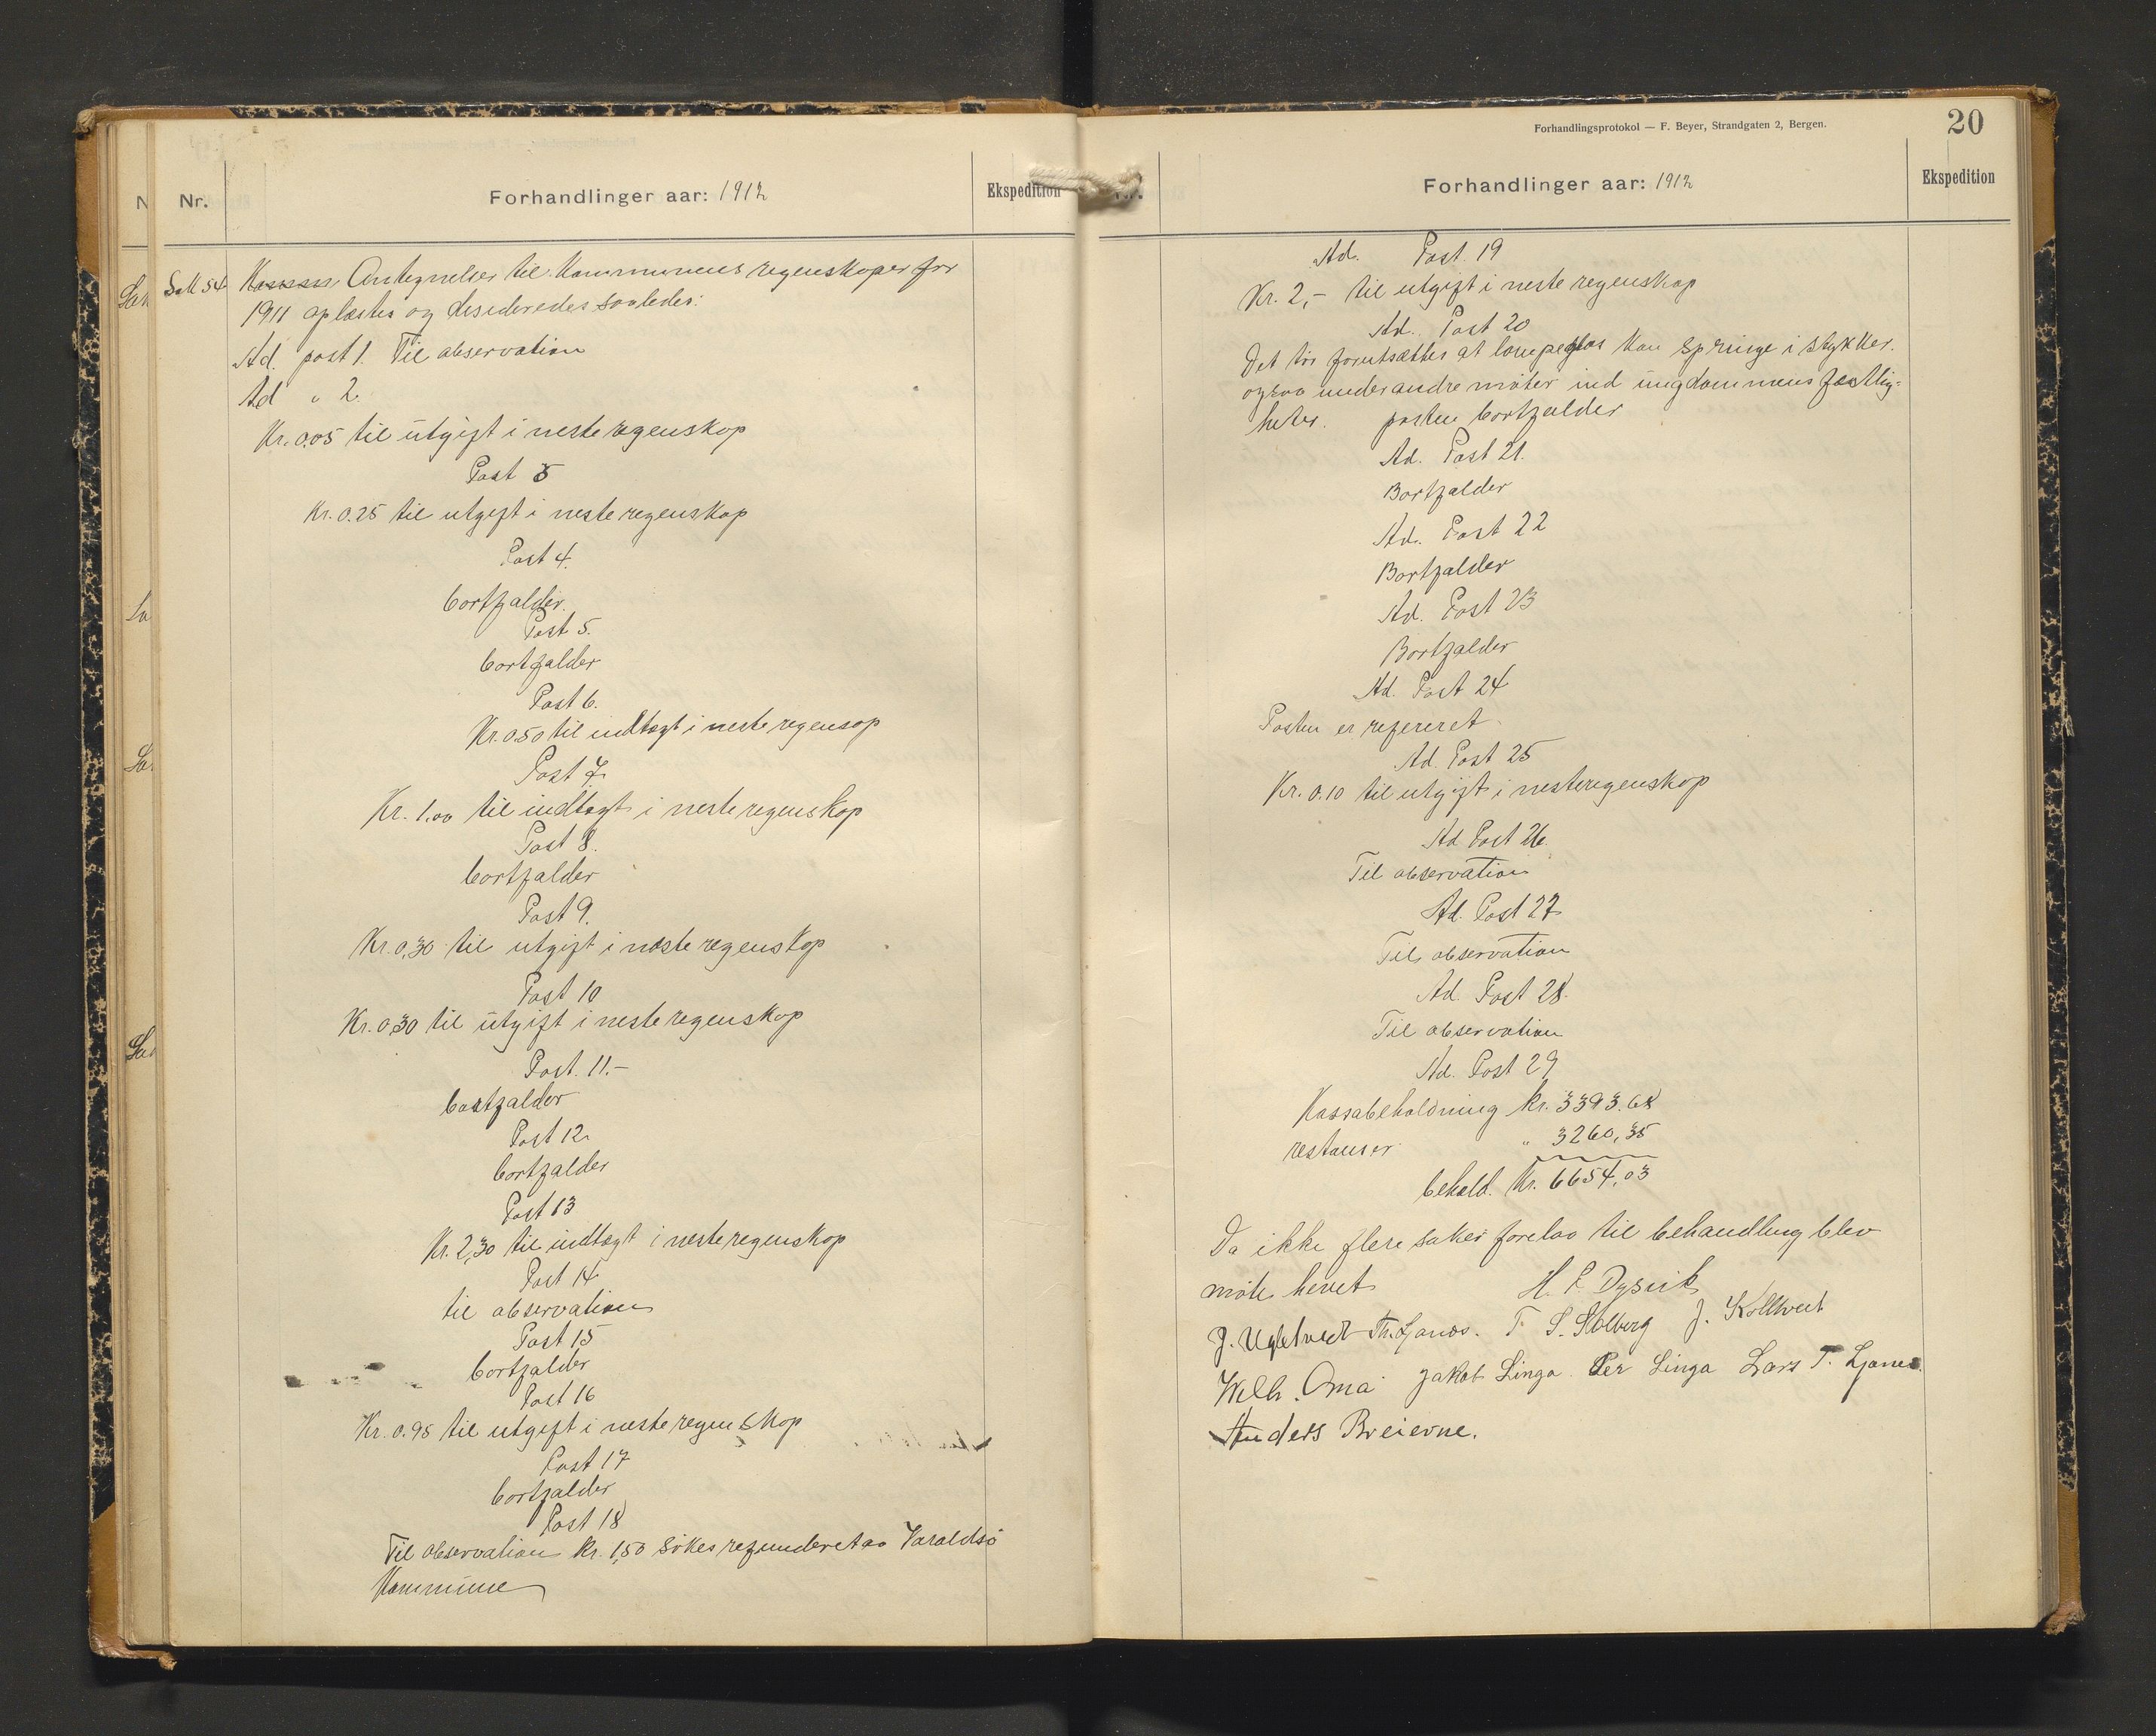 Nr.
Forhandlinger aar: 1912
Ekspedition
Sak 54
Antegnelser til Kommunens regenskaper for
1911 oplæstes og desideredes saaledes:
Ad. post 1. Til observation
Ad " 2.
Kr. 0.05 til utgift i neste regenskap
Post 3
Kr. 0.25 til utgift i neste regenskap
Post 4.
bortfalder.
Post 5.
bortfalder
Post 6.
Kr. 0.50 til indtægt i neste regensap
Post 7.
Kr. 1.00 til indtægt i neste regenskap
Post 8.
bortfalder
Post 9.
Kr. 0,30 til utgift i næste regenskap
Post 10
Kr. 0,30 til utgift i neste regenskap
Post. 11.-
bortfalder
Post 12.
bortfalder
Post 13
Kr. 2,30 til indtægt i neste regenskap
Post 14
til observation
Post 15
bortfalder
Post 16
Kr. 0.95 til utgift i neste regenskap
Post 17
bortfalder
Post 18
Til observation Kr. 1,50 søkes refunderet av Varaldsø
Kommune
Forhandlingsprotokol — F. Beyer, Strandgaten 2, Bergen.
20
Nr.
Forhandlinger aar: 1912
Ekspedition
Ad. Post. 19
Kr. 2,- til utgift i neste regenskap
Ad. Post 20
Det tør forutsættes at lampeglas kan springe i stykker.
ogsaa under andre møter ind ungdommens festlig=
heter. posten bortfalder
Ad. Post 21.
Bortfalder
Ad. Post 22
Bortfalder
Ad. Post 23
Bortfalder
Ad. Post 24
Posten er refereret
Ad. Post 25
Kr. 0.10 til utgift i neste regenskap
Ad Post 26.
Til observation
Ad. Post 27
Til observation
Ad. Post 28.
Til observation
Ad. Post 29
Kassabeholdning kr. 3393.68
restanser " 3260,35
behold. Kr. 6654,03
Da ikke flere saker forelaa til behandling blev
møte hevet H. P. Dysvik
J. Uglehvedt Th. Ljanes. T. S. Solberg J. Koltveit
Wilh. Oma Jakob Linga. Per Linga Lars T. Ljanes.
Anders Breievne.